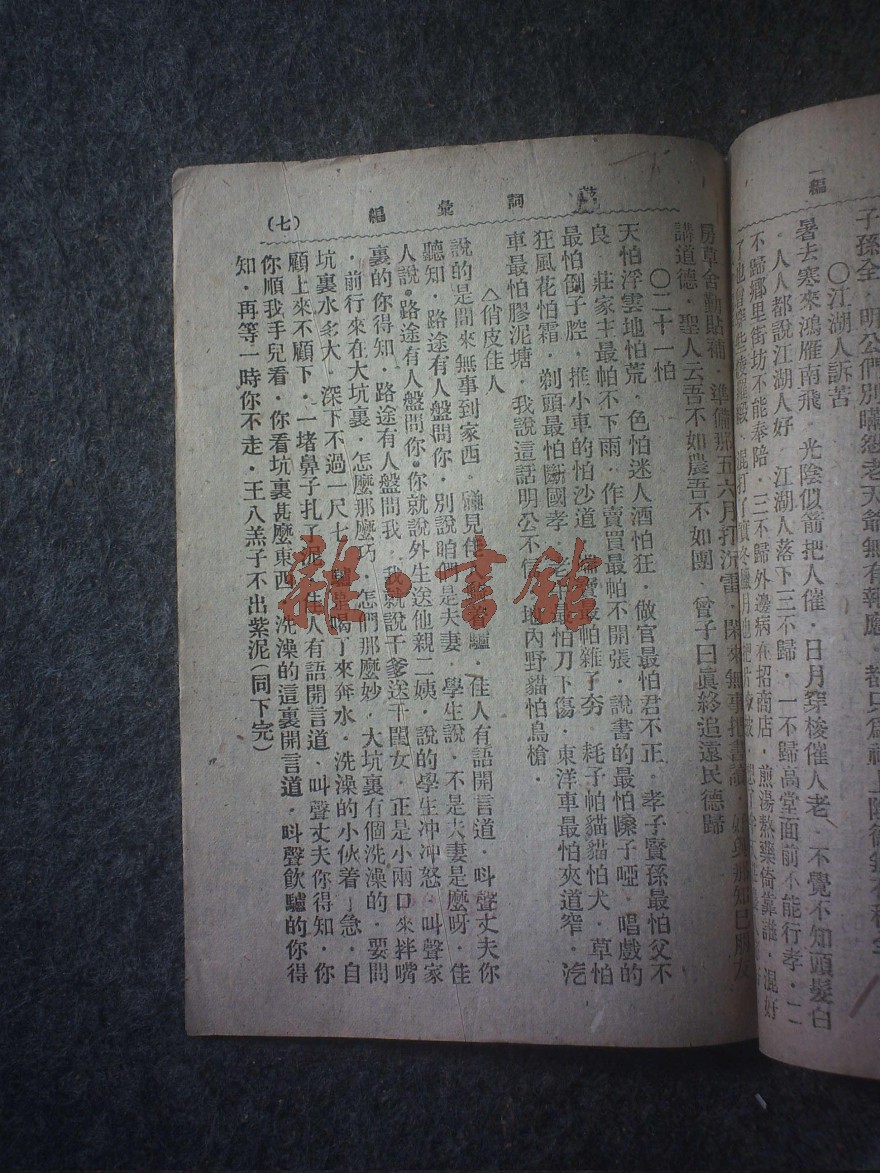 編
子孫全·明公們別嘯怨老天爺無有報應·都只為
〇江湖人訴苦
暑去寒來鴻雁南飛·光陰似箭把人催·日月穿梭催人老·不覺不知頭髮白
·人人都說江湖人好·江湖人落下三不歸·一不歸高堂面前不能行孝·二
不歸鄉里街坊不能奉陪·三不歸外邊病在招商店·煎湯熬藥倚靠誰·混好
詞彙編
(七)
房草舍勤貼補·準備那五六月打沉雷·閑來無事把書讀·
講道德·聖人云吾不如農吾不如團·曾子曰真終追遠民德歸
〇二十一怕
天怕浮雲地怕荒·色怕迷人酒怕狂·做官最怕君不正·孝子賢孫最怕父不
良·莊家主最怕不下雨·作賣買最怕不開張·說書的最怕嗓子啞·唱戲的
最怕倒子腔·推小車的怕沙道·最怕雜子夯·耗子怕貓貓怕犬·草怕
狂風花怕霜·剃頭最怕斷國孝·最怕刀下傷·東洋車最怕夾道窄·汽
車最怕膠泥塘·我說這話明公不信·地內野貓怕鳥槍·
△俏皮佳人
說的是閒來無事到家西·驢·佳人有語開言道·呌聲丈夫你
聽知·路途有人盤問你·別說咱們是夫妻·學生說·不是夫妻是麼呀·佳
人說·路途有人盤問你·你就說外生送他親二姨·說的學生冲冲怒·叫聲家
裏的你得知·路途有人盤問我·我就說干爹送干閨女·正是小兩口來拌嘴
·前行來在大坑裏·怎麼那麼巧·怎們那麼妙·大坑裏有個洗澡的·要問
坑裏水多大·深下不過一尺七·驢是喝了來奔水·洗澡的小伙着了急·自
顧上來不顧下·一堵鼻子扎了泥·佳人有語開言道·叫聲丈夫你得知·你
你順我手兒看·你看坑裏甚麼東西·洗澡的這裏開言道·呌聲飲驢的你得
知·再等一時你不走·王八羔子不出紫泥(同下完)
雜·書館